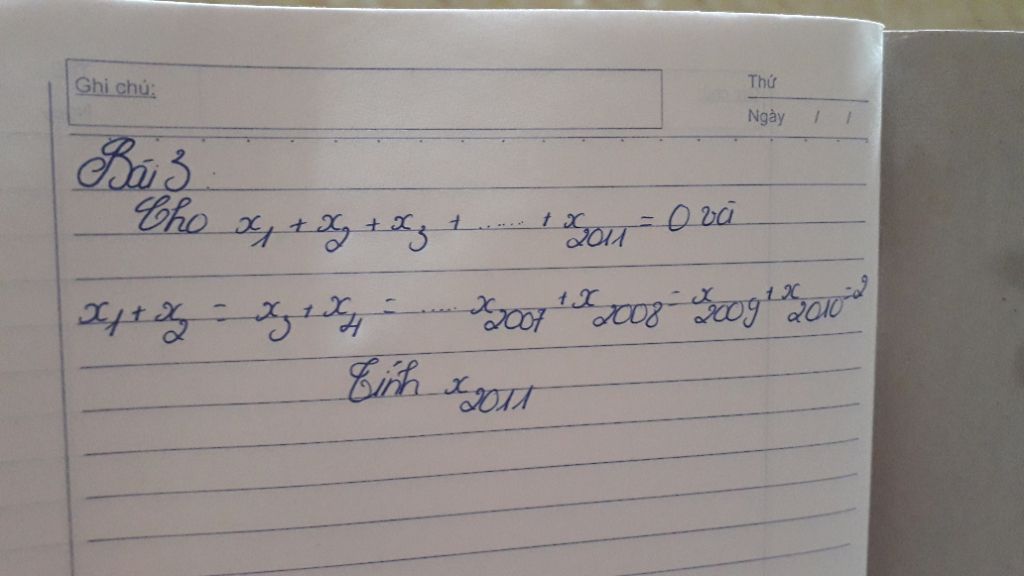 Ghi chú:
Thứ
Ngày / /
Bài 3
Cho x₁ + x₂ + x₃ + ...... + x₂₀₁₁ = 0 và
x₁ + x₂ = x₃ + x₄ = .... x₂₀₀₇ + x₂₀₀₈ = x₂₀₀₉ + x₂₀₁₀ = 2
Tính x₂₀₁₁